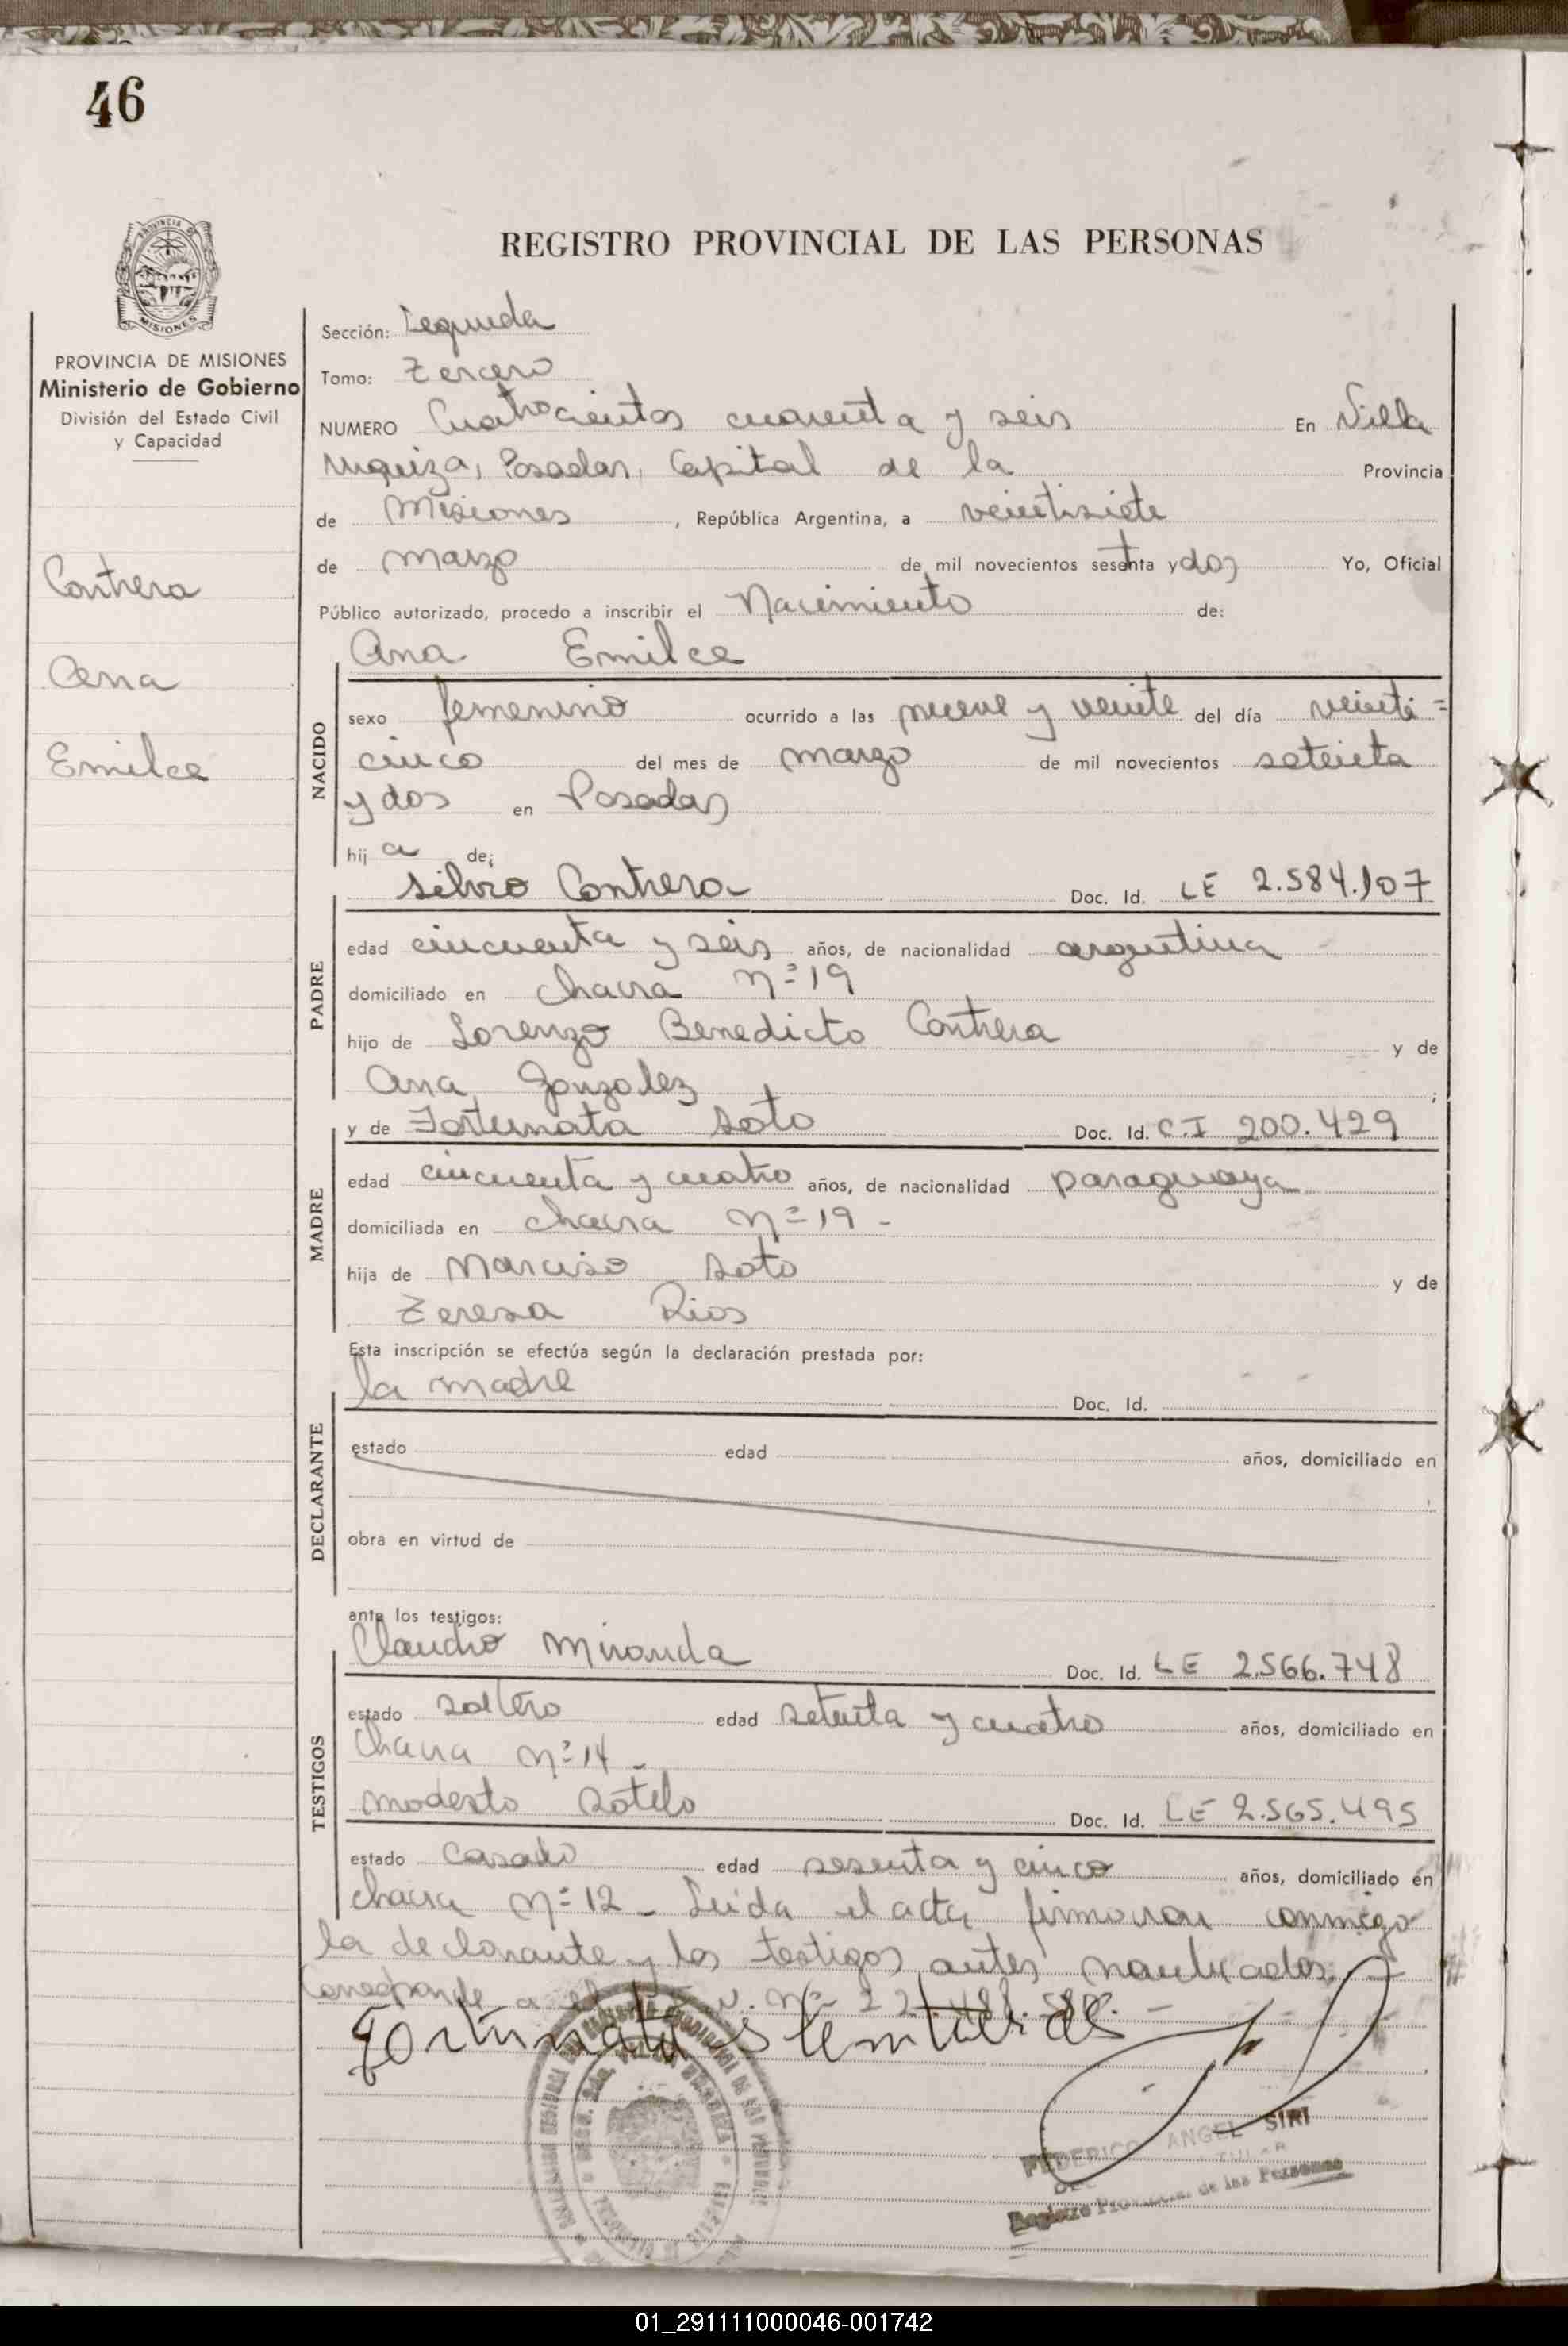 46
REGISTRO PROVINCIAL DE LAS PERSONAS
PROVINCIA DE MISIONES
Ministerio de Gobierno
División del Estado Civil
y Capacidad
Contrera
Ana
Emilce
Sección: Segunda
Tomo: Tercero
NUMERO Cuatrocientos cuarenta y seis En Villa
Urquiza, Posadas, Capital de la Provincia
de Misiones, República Argentina, a veintisiete
de marzo de mil novecientos setenta y dos Yo, Oficial
Público autorizado, procedo a inscribir el Nacimiento de:
Ana Emilce
NACIDO
sexo femenino ocurrido a las nueve y veinte del día veinti=
cinco del mes de marzo de mil novecientos setenta
y dos en Posadas
hija de:
Silvio Contrera Doc. Id. LE 2.584.107
PADRE
edad cincuenta y seis años, de nacionalidad argentina
domiciliado en chacra nº 19
hijo de Lorenzo Benedicto Contrera y de
Ana Gonzalez ;
MADRE
y de Fortunata Soto Doc. Id. C.I 200.429
edad cincuenta y cuatro años, de nacionalidad paraguaya
domiciliada en chacra nº 19 -
hija de Narciso Soto y de
Teresa Rios
Esta inscripción se efectúa según la declaración prestada por:
la madre Doc. Id.
DECLARANTE
estado edad años, domiciliado en
obra en virtud de
ante los testigos:
TESTIGOS
Claudio Miranda Doc. Id. LE 2.566.748
estado soltero edad setenta y cuatro años, domiciliado en
chacra nº 14 -
Modesto Sotelo Doc. Id. LE 2.565.495
estado casado edad sesenta y cinco años, domiciliado en
chacra nº 12 - Leida el acta firmaron conmigo
la declarante y los testigos antes nombrados.
Corresponde a el
Fortunata S
FEDERICO ANGEL SIRI
TITULAR
Registro Provincial de las Personas
01_291111000046-001742